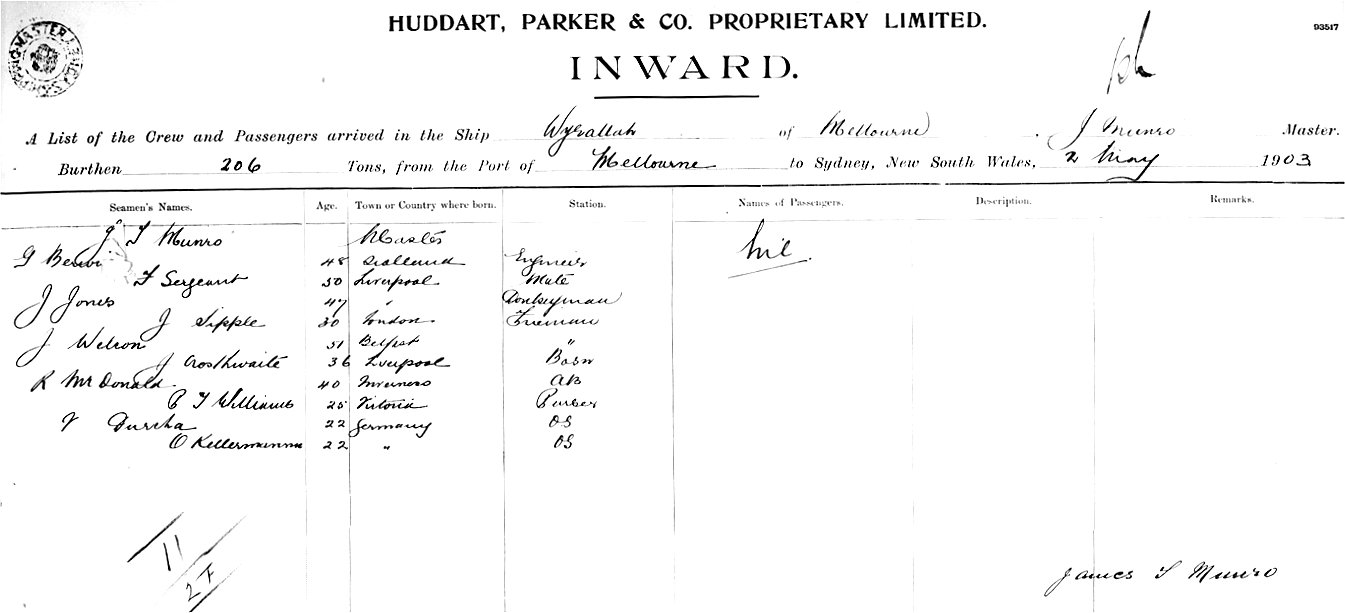 HUDDART, PARKER & CO. PROPRIETARY LIMITED.
93517
INWARD.
A List of the Crew and Passengers arrived in the Ship Wyrallah of Melbourne. J Munro Master.
Burthen 206 Tons, from the Port of Melbourne to Sydney, New South Wales, 2 May 1903
Seamen's Names. Age. Town or Country where born. Station. Names of Passengers. Description. Remarks.
J T Munro Master nil.
G 48 Scotland Engineer
F Sergeant 50 Liverpool Mate
J Jones 47 " Donkeyman
J Sipple 30 London Fireman
J Welson 51 Belfast "
J Crosthwaite 36 Liverpool Bosn
R McDonald 40 Inverness AB
T Williams 25 Victoria Purser
22 Germany OS
O Kellermann 22 " OS
11
2 F
James T Munro